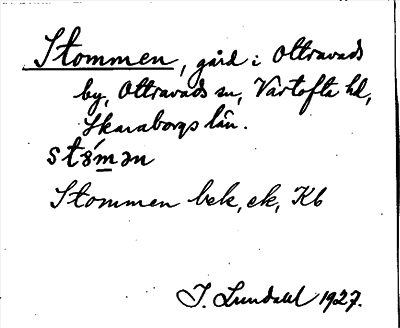 Stommen, gård i Ottravads
by, Ottravads sn, Vartofta hd,
Skaraborgs län.
stómən
Stommen bek, ek, Kb
I. Lundahl 1927.